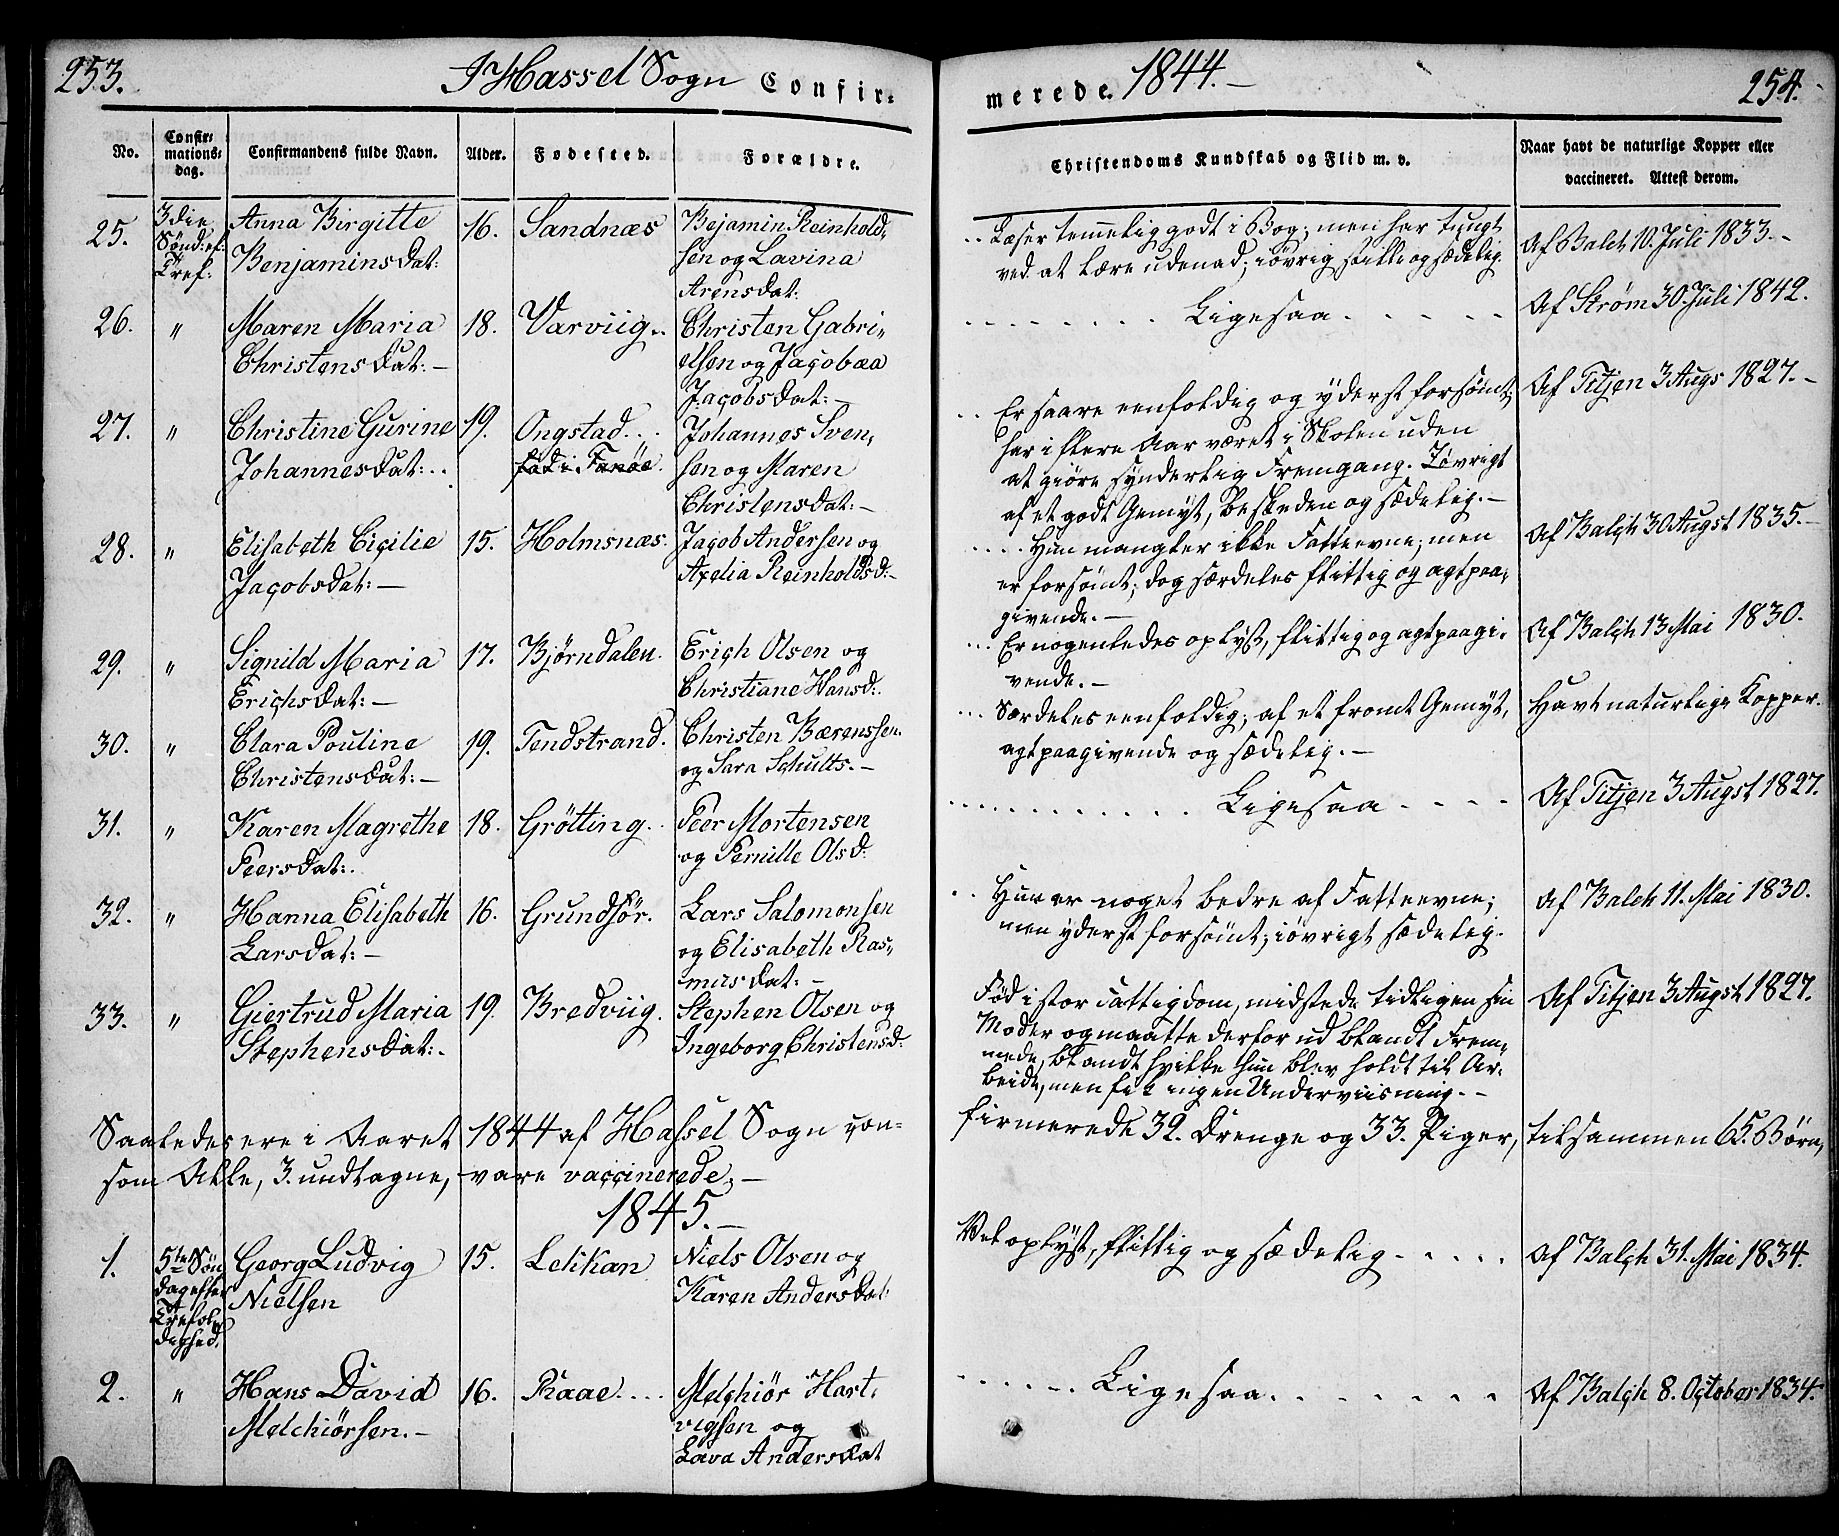 253.
I Hassel Sogn Confir=
No.
Confir=
mations=
dag.
Confirmandens fulde Navn.
Alder.
Fødested.
Forældre.
25.
3die
Sønd: ef:
Tref:
Anna Birgitte
Benjaminsdat:
16.
Sandnæs
Bejamin Reinhold,
sen og Lavina
Arensdat:
26.
"
Maren Maria
Christensdat: —
18.
Varviig..
Christen Gabri,
elsen og Jacobæa
Jacobsdat: —
27.
"
Christine Gurine
Johannesdat: ..
19.
Ongstad...
fød i Fanøe.
Johannes Sven,
sen og Maren
Christensdat: —
28.
"
Elisabeth Cicilie
Jacobsdat: —
15.
Holmsnæs.
Jacob Andersen og
Axelia Reinholdsd: —
29.
"
Signild Maria
Erichsdat: —
17.
Bjørndalen.
Erich Olsen og
Christiane Hansd:.
30.
"
Clara Pouline
Christensdat: —
19.
Tendstrand.
Christen Bærenssen.
og Sara Schults. —
31.
"
Karen Magrethe
Peersdat:.
18.
Grøtting..
Peer Mortensen
og Pernille Olsd:
32.
"
Hanna Elisabeth
Larsdat: —
16.
Grundfør.
Lars Salomonsen
og Elisabeth Ras,
musdat: —
33.
"
Giertrud Maria
Stephensdat:.
19.
Bredviig.
Stephen Olsen og
Ingeborg Christensd:
Saaledes ere i Aaret 1844 af Hassel Sogn con=
som Alle, 3. undtagne, vare vaccinerede; —
1845. —
1.
5te Søn
dag efter
Trefol
dighed.
Georg Ludvig
Nielsen
15.
Lekkan
Niels Olsen og
Karen Andersdat
2.
"
Hans David
Melchiørsen. —
16.
Raae....
Melchiør Hart,
vigsen og
Lava Andersdat
merede. 1844. —
254.
Christendoms Kundskab og Flid m. v.
Naar havt de naturlige Kopper eller
vaccineret. Attest derom.
.. Læser temmelig godt i Bog; men har tungt
ved at lære udenad; iøvrig stille og sædelig.
Af Balch 10. Juli 1833. —
........ Ligesaa.....
Af Strøm 30. Juli 1842.
.. Er saare eenfoldig og yderst forsømt;
har i flere Aar været i Skolen uden
at giøre synderlig Fremgang. Iøvrigt
af et godt Gemyt, beskeden og sædelig. —
Af Titjen 3 Augs 1827. —
.... Hun mangler ikke Fatteevne; men
er forsømt; dog særdeles flittig og agtpaa,
givende. —
Af Balch 30 Augst 1835. —
... Er nogenledes oplyst, flittig og agtpaagi,
vende. —
Af Balch 13 Mai 1830.
... Særdeles eenfoldig; af et fromt Gemyt,
agtpaagivende og sædelig. —
Havt naturlige Kopper.
.......... Ligesaa....
Af Titjen 3 Augst 1827.
.. Hun er noget bedre af Fatteevne;
men yderst forsømt; iøvrigt sædelig.
Af Balch 11. Mai 1830.
Fød i stor Fattigdom, midstede tidligen sin
Moder og maatte derfor ud blandt Frem,
mede, blandt hvilke hun blev holdt til Ar,
beide, men fik ingen Underviisning. —
Af Titjen 3 Augst 1827.
firmerede 32. Drenge og 33. Piger, tilsammen 65. Børn,
Vel oplyst, flittig og sædelig.....
Af Balch 31. Mai 1834.
...... Ligesaa.......
Af Balch 8. October 1834.